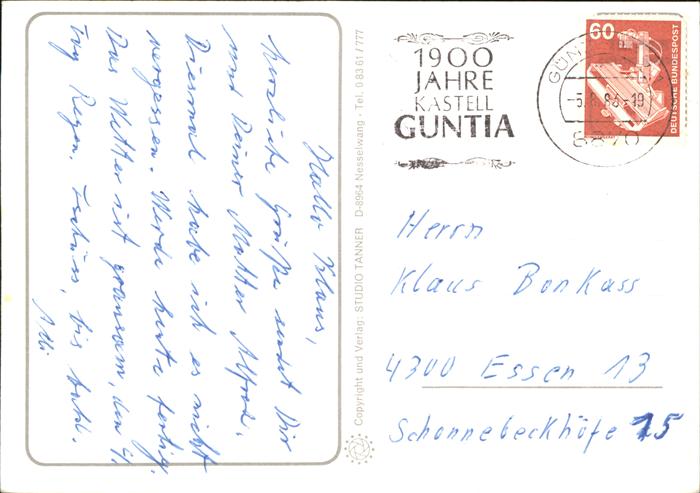 Hallo Klaus,
herzliche Grüße sendet Dir
und Deiner Mutter Alfred.
Diesmal habe ich es nicht
vergessen. Werde heute fertig.
Das Wetter ist grausam, den
Tag Regen. Tschüss, bis bald.
Adi
Copyright und Verlag: STUDIO TANNER D-8964 Nesselwang - Tel. 0 83 61 / 777
1900
JAHRE
KASTELL
GUNTIA
GÜNZ
-5.8.88-19
8870
60
DEUTSCHE BUNDESPOST
Herrn
Klaus Bonkass
4300 Essen 13
Schonnebeckhöfe 15